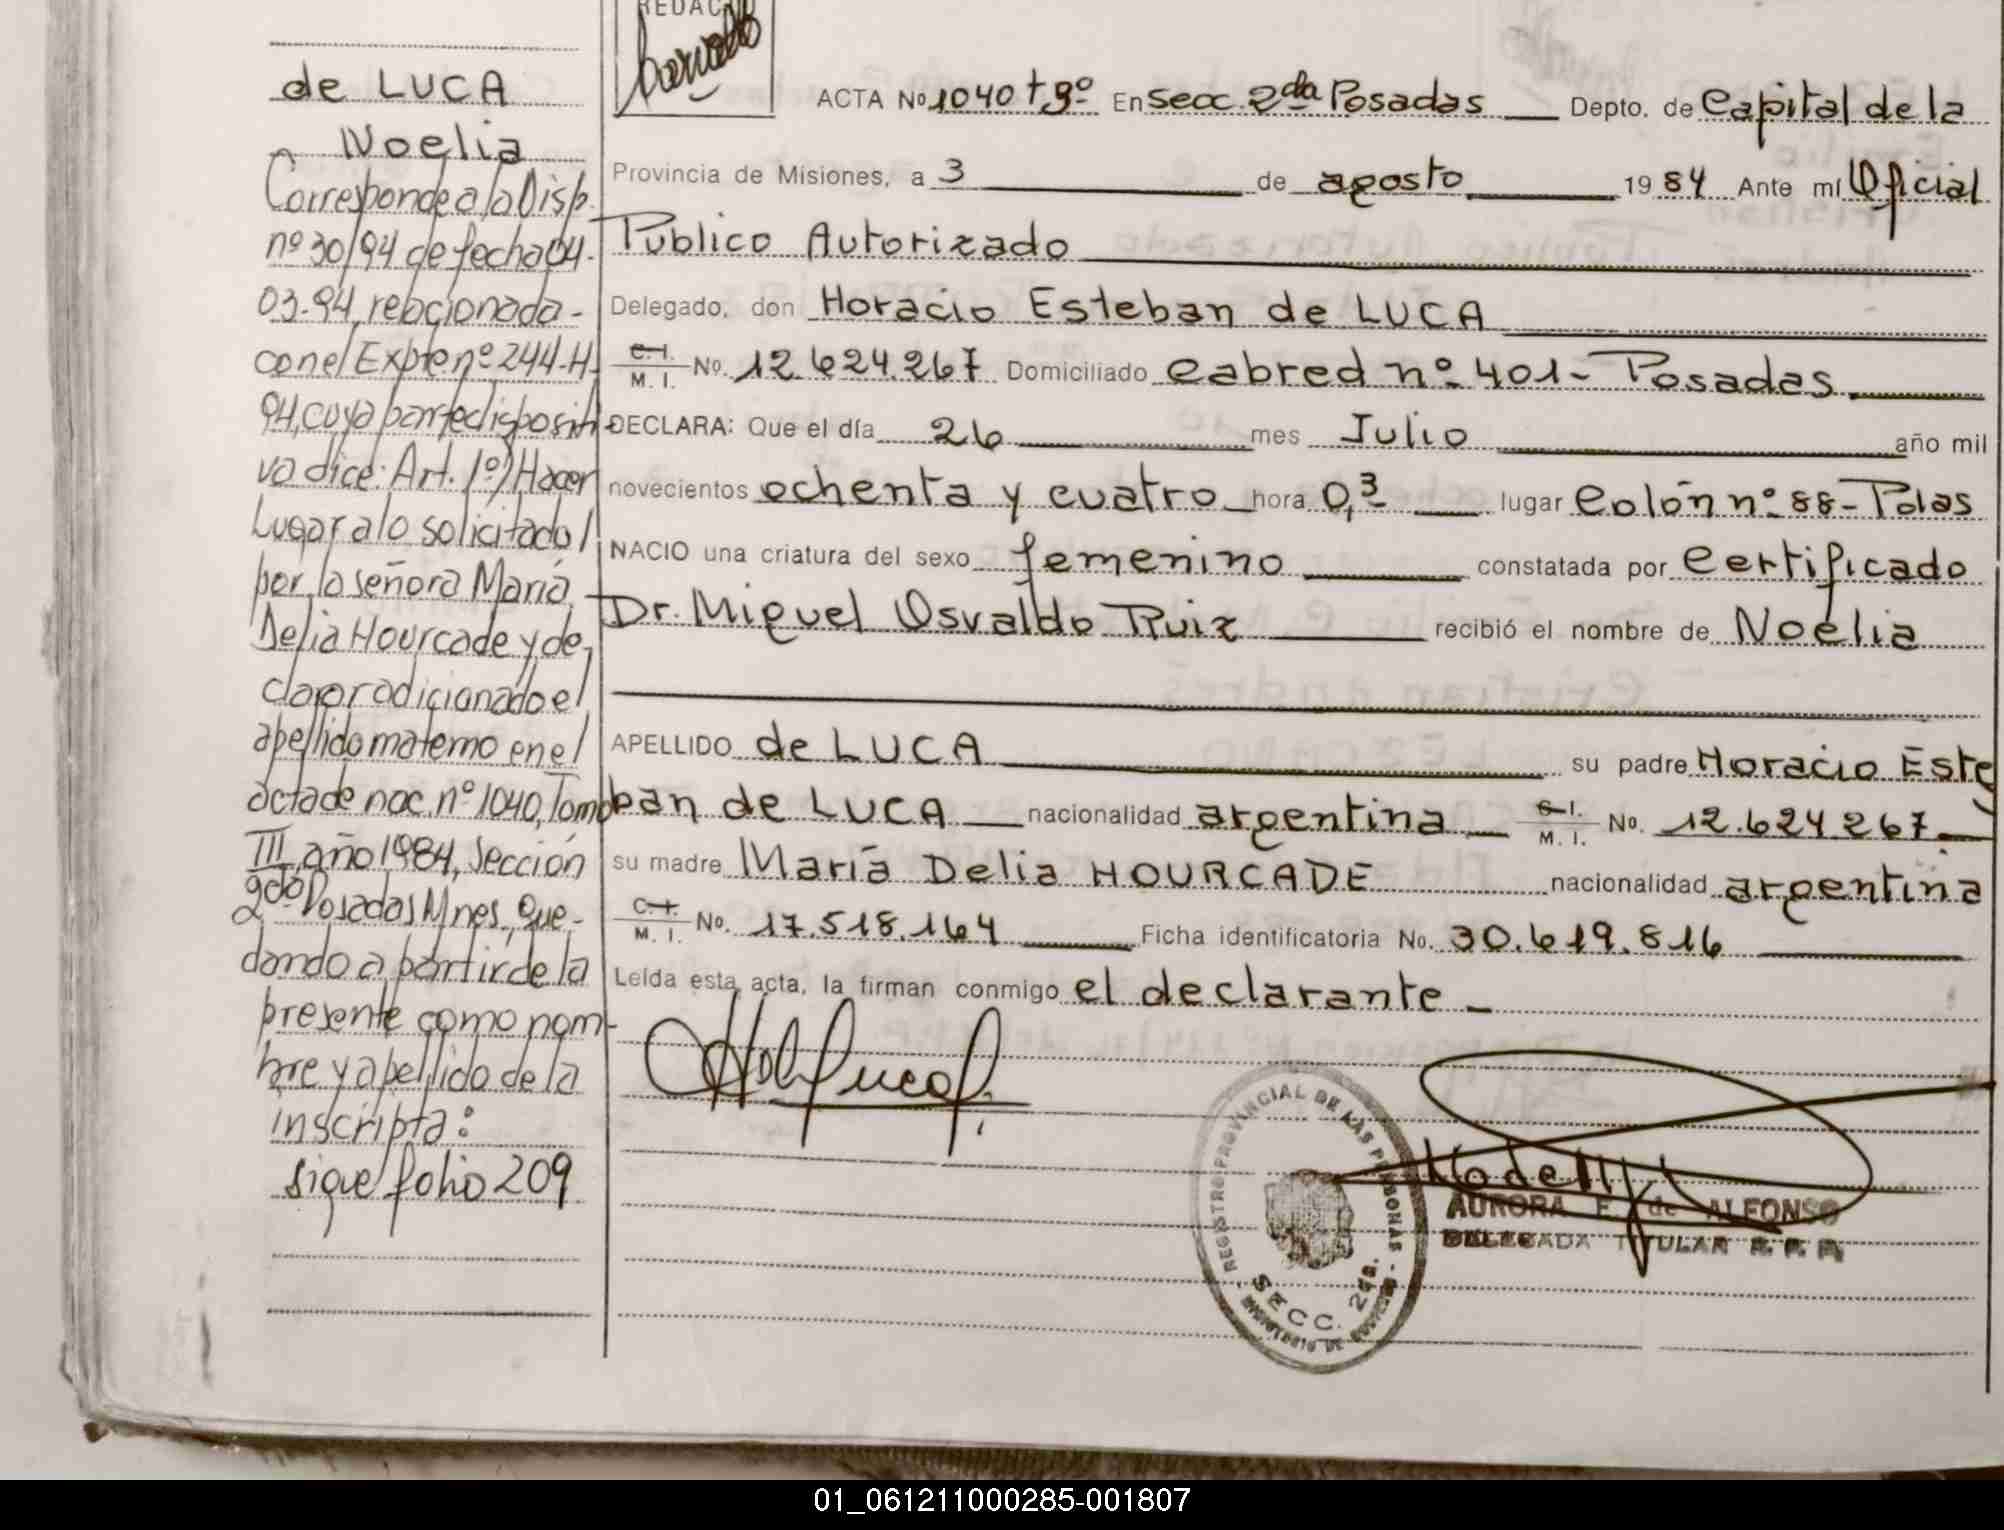 de LUCA
Noelia
Corresponde a la Disp.
nº 30/94 de fecha 04-
03-94, relacionada-
con el Expte nº 244-H-
94, cuya parte dispositi-
va dice: Art. 1º) Hacer
Lugar a lo solicitado/
por la señora María
Delia Hourcade y de-
clarar adicionado el
apellido materno en el/
acta de nac. nº 1040, Tomo
III, año 1984, Sección
2da Posadas, Mnes, Que-
dando a partir de la
presente como nom-
bre y apellido de la
inscripta:
sigue folio 209
REDAC
ACTA No 1040 t 3º En Secc. 2da Posadas Depto. de Capital de la
Provincia de Misiones, a 3 de agosto 1984 Ante mí Oficial
Público Autorizado
Delegado, don Horacio Esteban de LUCA
C.I. M. I. No. 12.624.267 Domiciliado Cabred nº 401- Posadas.
DECLARA: Que el día 26 mes Julio año mil
novecientos ochenta y cuatro hora 0,3 lugar Colón nº 88- Pdas
NACIO una criatura del sexo femenino constatada por Certificado
Dr. Miguel Osvaldo Ruiz recibió el nombre de Noelia
APELLIDO de LUCA su padre Horacio Este
ban de LUCA nacionalidad argentina C.I. M. I. No. 12.624.267
su madre María Delia HOURCADE nacionalidad argentina
C.I. M. I. No. 17.518.164 Ficha identificatoria No. 30.619.816
Leída esta acta, la firman conmigo el declarante
REGISTRO PROVINCIAL DE LAS PERSONAS
SECC. 2da.
AURORA E. de ALFONSO
DELEGADA TITULAR R. P. P.
01_061211000285-001807